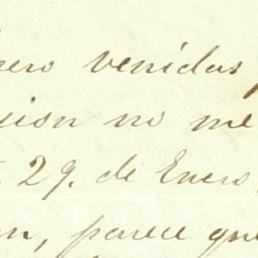 ero venidas
sion no me
29. de Enero
n, parece que